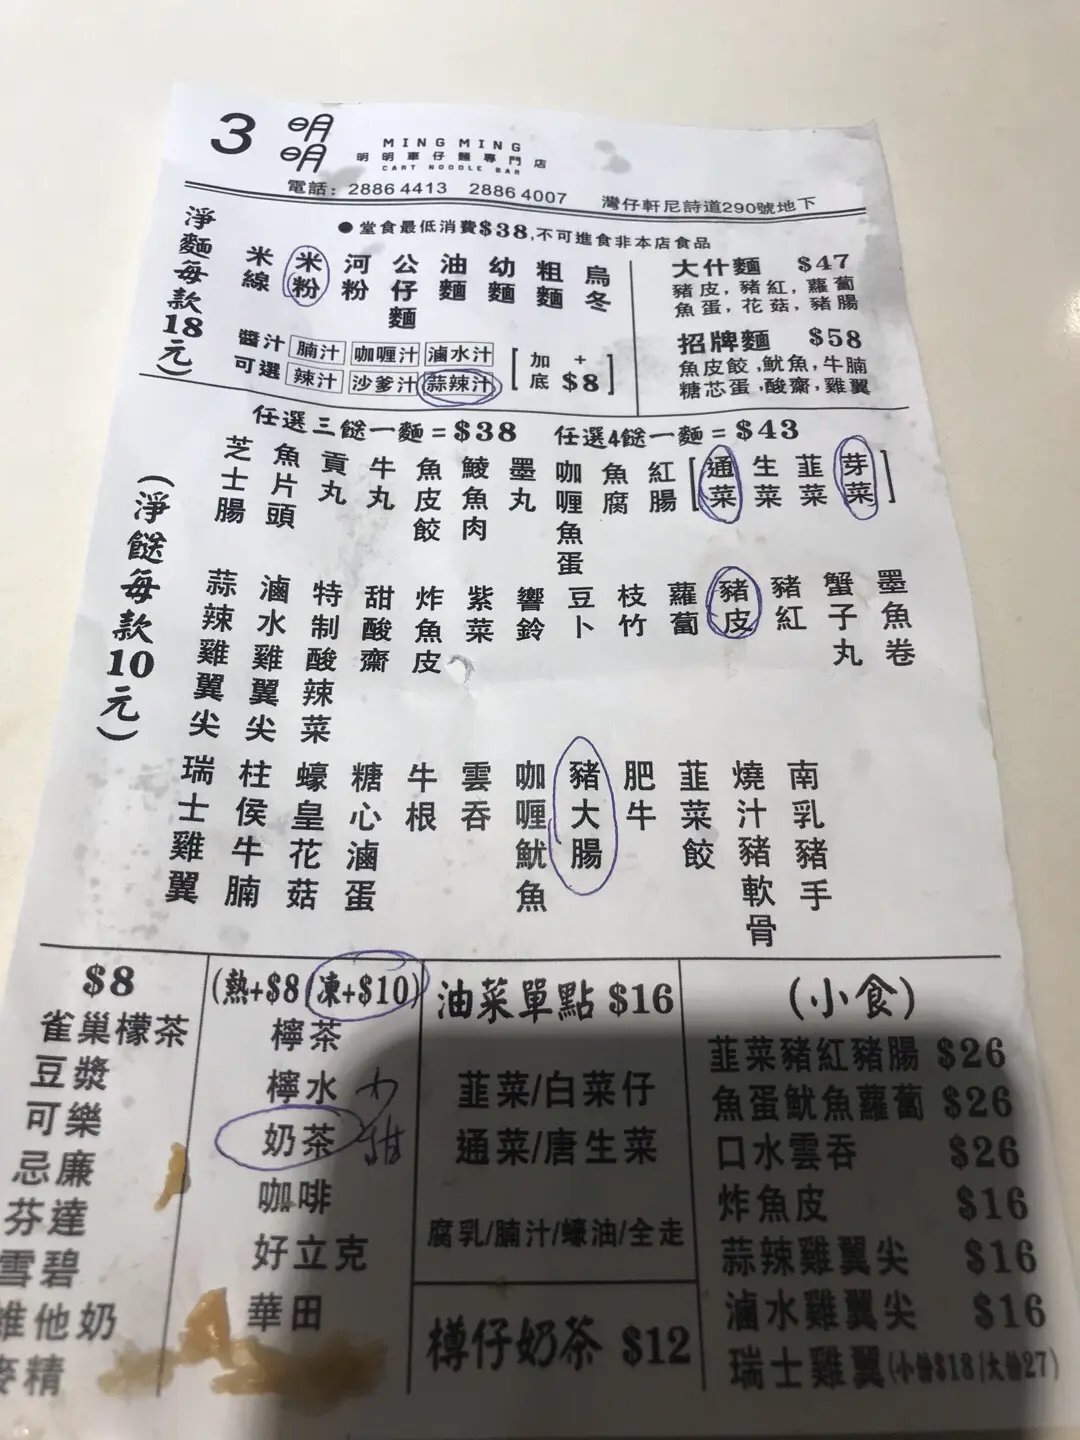 3 明明
MING MING
明明車仔麵專門店
CART NOODLE BAR
電話: 2886 4413 2886 4007 灣仔軒尼詩道290號地下
●堂食最低消費$38,不可進食非本店食品
淨麵每款18元
米線
米粉
河粉
公仔麵
油麵
幼麵
粗麵
烏冬
醬汁可選
腩汁 咖喱汁 滷水汁
辣汁 沙爹汁 蒜辣汁
[加底 +$8]
大什麵 $47
豬皮,豬紅,蘿蔔
魚蛋,花菇,豬腸
招牌麵 $58
魚皮餃,魷魚,牛腩
糖芯蛋,酸齋,雞翼
任選三餸一麵=$38 任選4餸一麵=$43
(淨餸每款10元)
芝士腸
魚片頭
貢丸
牛丸
魚皮餃
鯪魚肉
墨丸
咖喱魚蛋
魚腐
紅腸
[通菜
生菜
韮菜
芽菜]
蒜辣雞翼尖
滷水雞翼尖
特制酸辣菜
甜酸齋
炸魚皮
紫菜
響鈴
豆卜
枝竹
蘿蔔
豬皮
豬紅
蟹子丸
墨魚卷
瑞士雞翼
柱侯牛腩
蠔皇花菇
糖心滷蛋
牛根
雲吞
咖喱魷魚
豬大腸
肥牛
韮菜餃
燒汁豬軟骨
南乳豬手
$8
雀巢檬茶
豆漿
可樂
忌廉
芬達
雪碧
維他奶
麥精
(熱+$8(凍+$10)
檸茶
檸水
奶茶
咖啡
好立克
華田
油菜單點 $16
韮菜/白菜仔
通菜/唐生菜
腐乳/腩汁/蠔油/全走
樽仔奶茶 $12
(小食)
韮菜豬紅豬腸 $26
魚蛋魷魚蘿蔔 $26
口水雲吞 $26
炸魚皮 $16
蒜辣雞翼尖 $16
滷水雞翼尖 $16
瑞士雞翼(小份$18/大份27)